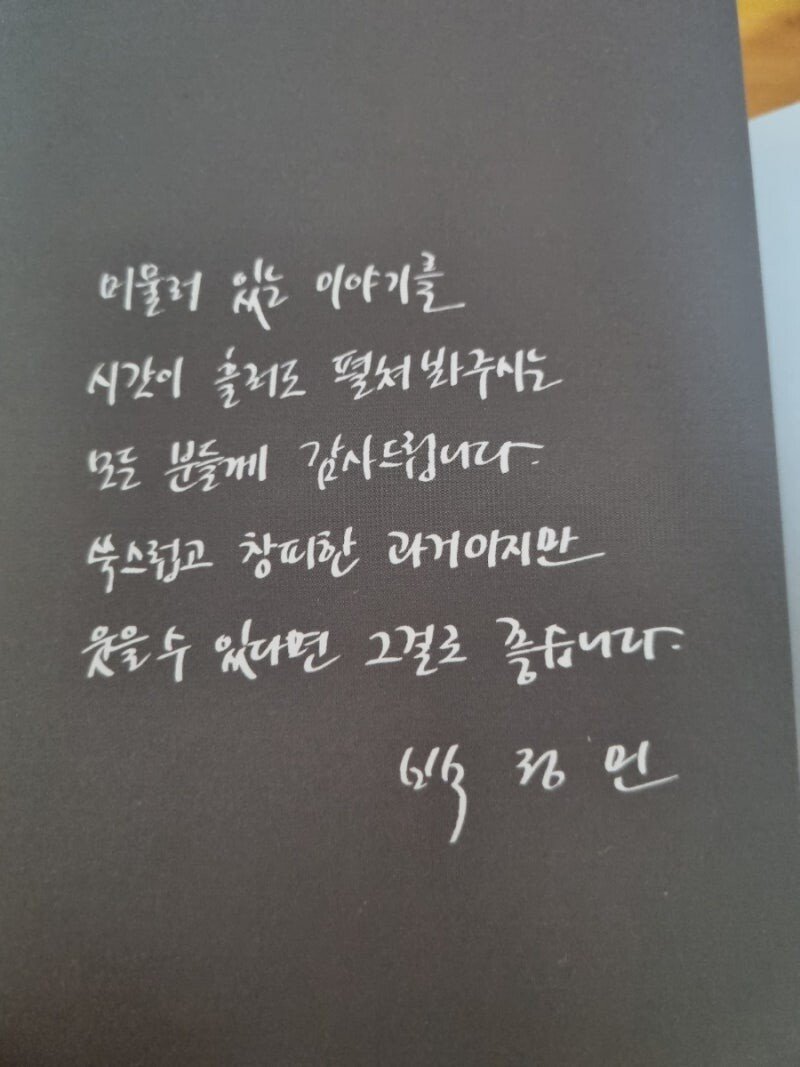 머물러 있는 이야기를
시간이 흘러도 펼쳐봐주시는
모든 분들께 감사드립니다.
쑥스럽고 창피한 과거이지만
웃을 수 있다면 그걸로 좋습니다.
박정민